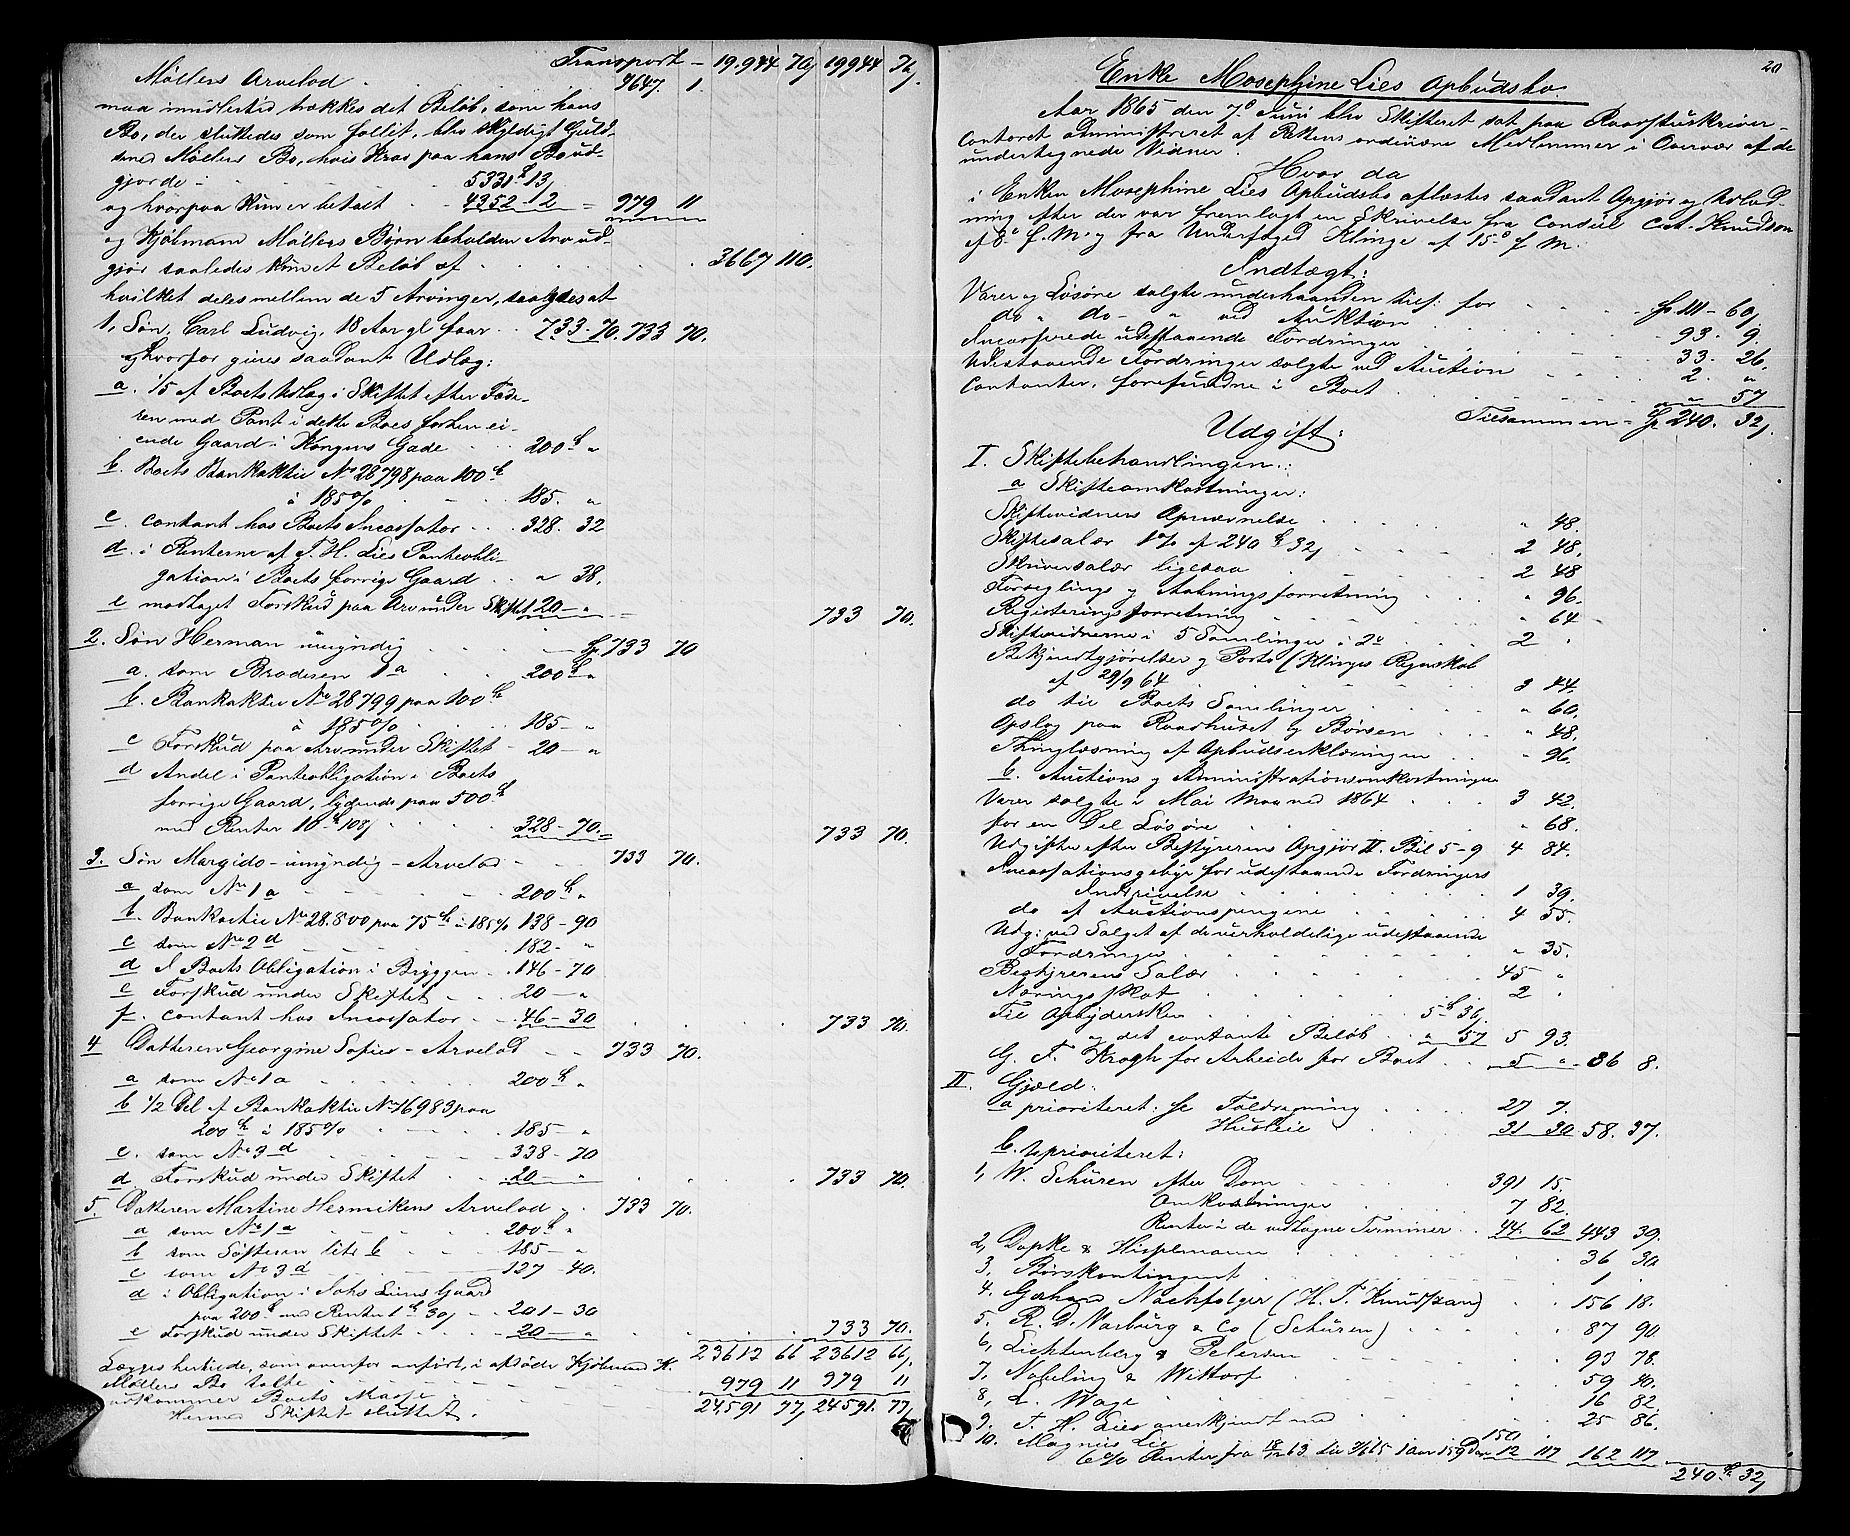 Transport – 19.944 70 19944 70
Møllers Arvelod . 9647. 1.
maa imidlertid trækkes det Beløb, som hans
Bo, der sluttedes som fallit, blev skyldigt Guld-
smed Møllers Bo, hvis Krav paa hans Bo ud-
gjorde 5331 13
og hvorpaa kun er betalt 4352 2 = 979 11
og Kjøbmand Møllers Børn beholden Arv ud-
gjør saaledes kun et Beløb af 3667 110.
hvilket deles mellem de 5 Arvinger, saaledes at
1, Søn, Carl Ludvig, 18 Aar gl faar 733 – 70. 733 70.
og hvorfor gives saadant Udlæg:
a. 1/5 af Boets Udlæg i Skiftet efter Fade-
ren med Pant i dette Boes forhen ei-
ende Gaard i Kongens Gade 200 "
b. Boets Bankaktie No 28798 paa 100
à 185% 185. "
c. contant hos Boets Incassator 328. 32
d. i Renterne af T. H. Lies Panteobli-
gation i Boets forrige Gaard " 38.
e modtaget Forskud paa Arv under Skiftet 20 – " 733 70.
2. Søn Herman umyndig 733 70
a. som Broderen 1 a 200 "
b. Bankaktie No 28799 paa 100
à 185% 185 – "
c Forskud paa Arv under Skiftet 20 – "
d Andel i Panteobligation i Boets
forrige Gaard, lydende paa 500
med Renter 10 108 328 – 70. 733 70.
3. Søn Margido – umyndig – Arvelod 733 70.
a som No 1 a 200 "
b. Bankactie No 28.800 paa 75 à 185% 138 – 90
c som No 2 d 182 – "
d I Boets Obligation i Bryggen 146 – 70
e Forskud under Skiftet 20 – "
f. contant hos Incassator 46 – 30 733 70.
4 Datteren Georgine Sofie – Arvelod 733 70.
a som No 1 a 200 "
b 1/2 Del af Bankaktie No 16983 paa
200 à 185% 185 – "
c. som No 3 d 338 – 70
d Forskud under Skiftet 20 – " 733 70.
5. Datteren Martine Henrikens Arvelod 733 70.
a som No 1 a 200 "
b som Søsteren litr b 185 – "
c som No 3 d 127 – 40.
d i Obligation i Gaard
paa 200 med Renter 1 30 201 – 30
e Forskud under Skiftet 20 – " 733 70.
23612 66 23612 66
Lægges hertil de, som ovenfor anført, i afdøde Kjøbmand H.
Møllers Bo talte 979 11 979 11
udkommer Boets Masse 24591 77 24591. 77
Hermed Skiftet sluttet.
20
Enke Mosephine Lies Opbudsbo.
Aar 1865 den 7 Juni blev Skifteret sat paa Raadstuskriver-
contoret administreret af Rettens ordinære Medlemmer i Overvær af de
undertegnede Vidner.
Hvor da
i Enken Mosephine Lies Opbudsbo aflæstes saadant Opgjør og Udlod-
ning efter der var fremlagt en Skrivelse fra Consul Chr. Knudtzon
af 8 f. M. og fra Underfoged Klinge af 15 f M.
Indtægt:
Varer og Løsøre solgte underhaanden tief: for 111 – 60
do " do – " ved Auktion 93. 9.
Incasserede udestaaende Fordringer 33. 26.
Udestaaende Fordringer solgte ved Auction 2. "
Contanter, forefundne i Boet " 57
Tilsammen 240. 32
Udgift:
I. Skiftebehandlingen:
a Skifteomkostninger:
Skiftevidners Opnævnelse " 48.
Skiftesalær 1% af 240 32 2 48.
Skriversalær ligesaa 2 48
Forseglings og Aabningsforretning " 96.
Registeringsforretning " 64
Skiftevidnerne i 5 Samlinger à 2 2 "
Bekjendtgjørelser og Porto (Klinges Regnskab
af 29/9 64 3 44.
do til Boets Samlinger " 60.
Opslag paa Raadhuset og Børsen " 48.
Thinglæsning af Opbudserklæringen " 96.
b. Auctions og Administrationsomkostninger
Varer solgte i Mai Maaned 1864 3 42.
for en Del Løsøre " 68.
Udgifter efter Bestyrerens Opgjør II. Bil 5–9 4 84.
Incassationsgebyr for udestaaende Fordringers
Inddrivelse 1 39.
do af Auctionspengene 4 55.
Udg: ved Salget af de uerholdelige udestaaende
Fordringer " 35.
Bestyrerens Salær 45 "
Næringsskat 2 "
Til Opbydersken 5 36
og det contante Beløb " 57 5 93.
G. F. Krogh for Arbeide for Boet 5 " 86 8.
II. Gjæld.
a prioriteret: se Foldregning 27 7.
Husleie 31 30 58. 37.
b. uprioriteret:
1, W. Schüren efter Dom 391 15.
Omkostninger 7 82.
Renter i de vedtagne Terminer 44. 62 443 39.
2, Dopke & Hispelmann 36 30
3. Børskontingent 1 "
4. Gohans Nachfolger (H. T. Knudtzon) 156 18.
5. R. D. Warburg & Co (Schüren) 87 90
6, Lichtenberg & Petersen 93 78.
7, Nobeling & Wittorf 59 40.
8, L. Wage 16 82.
9. T. H. Lies anerkjendt med 25 86.
10. Magnus Lie 150
6% Renter fra 18/12 63 til 1 Aar 159 Dage 12 117 162 117
240. 32